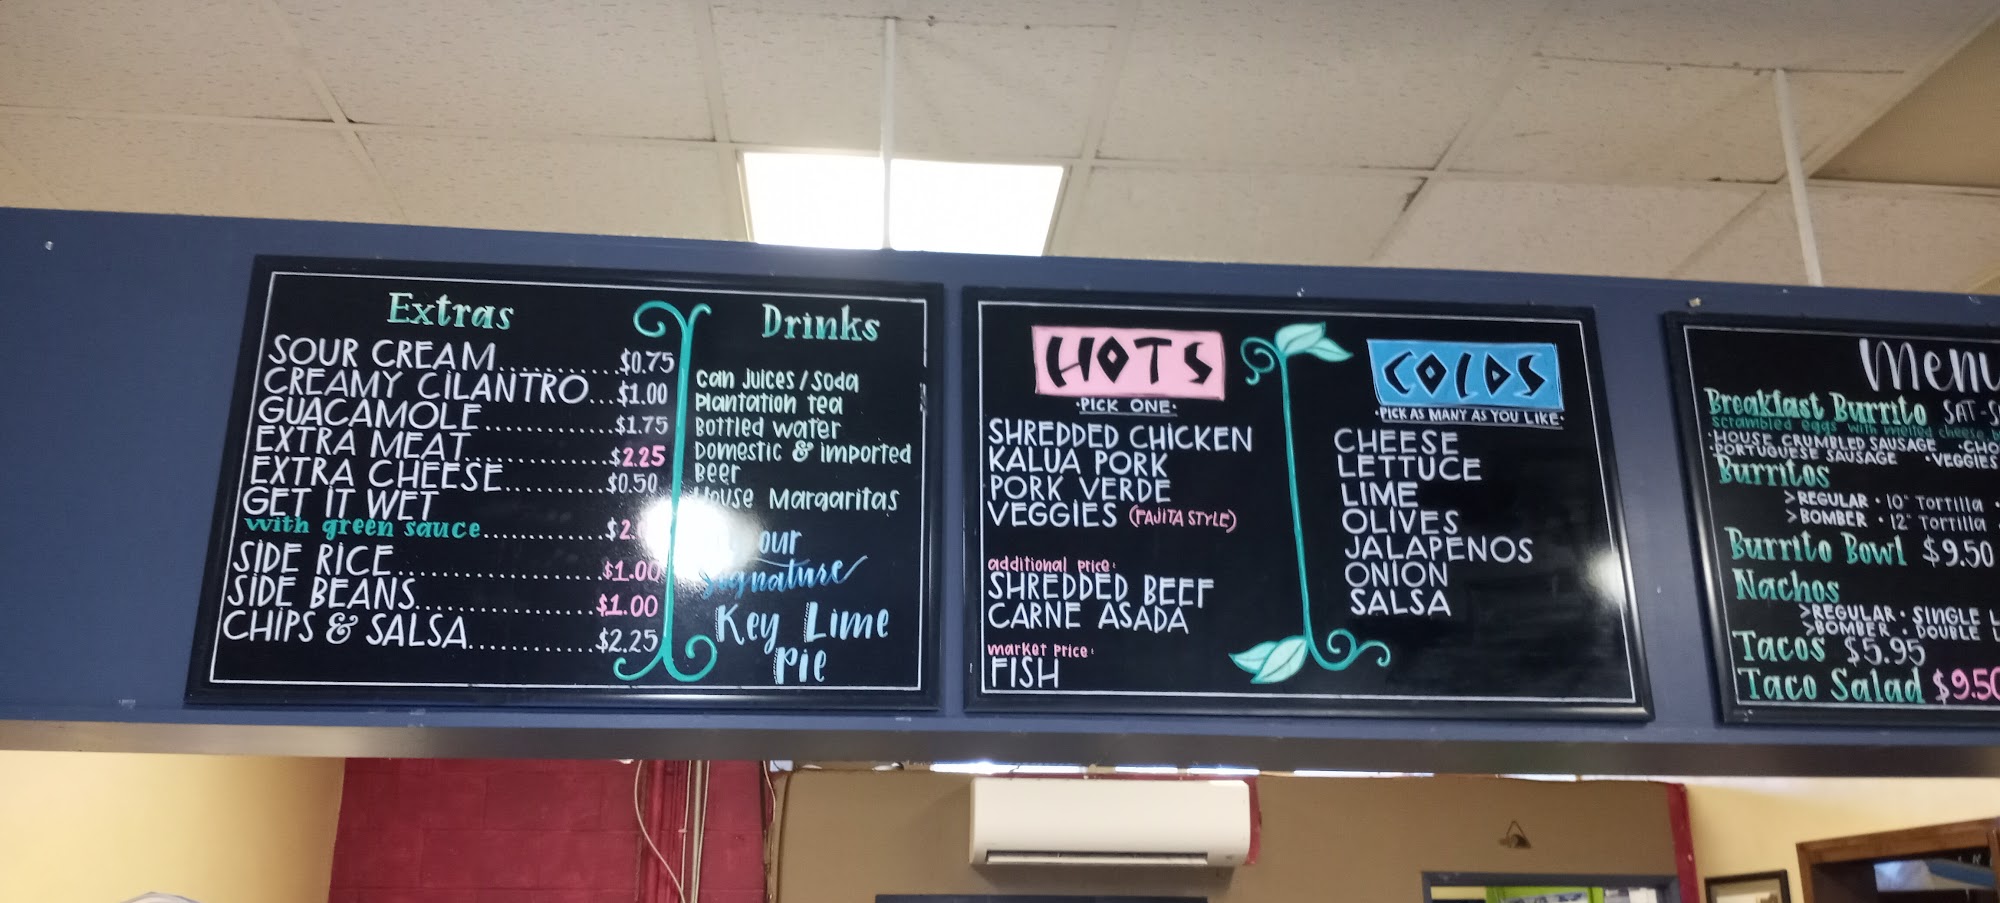 Extras
SOUR CREAM..........$0.75
CREAMY CILANTRO...$1.00
GUACAMOLE..............$1.75
EXTRA MEAT..............$2.25
EXTRA CHEESE..........$0.50
GET IT WET
with green sauce..............
SIDE RICE.....................$1.00
SIDE BEANS..................$1.00
CHIPS & SALSA............$2.25
Drinks
can juices / soda
Plantation tea
Bottled water
Domestic & imported
Beer
House Margaritas
our
signature
Key Lime
Pie
HOTS
·PICK ONE·
SHREDDED CHICKEN
KALUA PORK
PORK VERDE
VEGGIES (FAJITA STYLE)
additional price:
SHREDDED BEEF
CARNE ASADA
market price:
FISH
COLDS
·PICK AS MANY AS YOU LIKE·
CHEESE
LETTUCE
LIME
OLIVES
JALAPENOS
ONION
SALSA
Menu
Breakfast Burrito SAT-S
scrambled eggs with melted cheese
·HOUSE CRUMBLED SAUSAGE ·CHO
·PORTUGUESE SAUSAGE ·VEGGIES
Burritos
>REGULAR · 10" Tortilla ·
>BOMBER · 12" Tortilla
Burrito Bowl $9.50
Nachos
>REGULAR · SINGLE L
>BOMBER · DOUBLE L
Tacos $5.95
Taco Salad $9.50